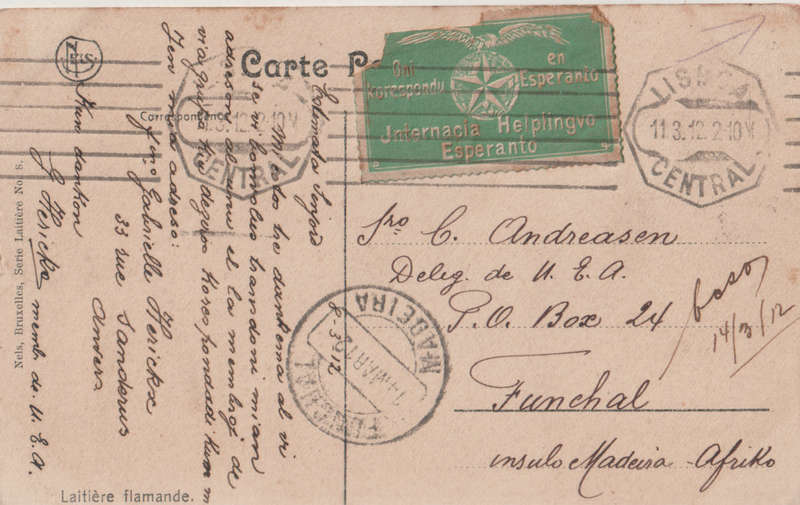 Carte
Oni korespondu en Esperanto
Internacia Helplingvo
Esperanto
LISBOA
11.3.12. 2-10
CENTRAL
CENTRAL
Correspondance
Sro C. Andreasen
Deleg. de U. E. A.
P. O. Box 24
Funchal
insulo Madeira - Afriko
14/3/12
FUNCHAL
14 MAR 12
MADEIRA
8-3-12
Estimata Sinjoro
Mi estos tre dankema al vi
se vi bonvolus transdoni mian
adreson al unu el la membroj de
via grupo kiu deziros korespondadi kun mi
Jen mia adreso:
Fino Gabrielle Herickx
33 rue Sanderus
Anvers
Kun dankon
G Herickx memb. de U. E. A.
Nels, Bruxelles, Serie Laitière No. 8.
Laitière flamande.